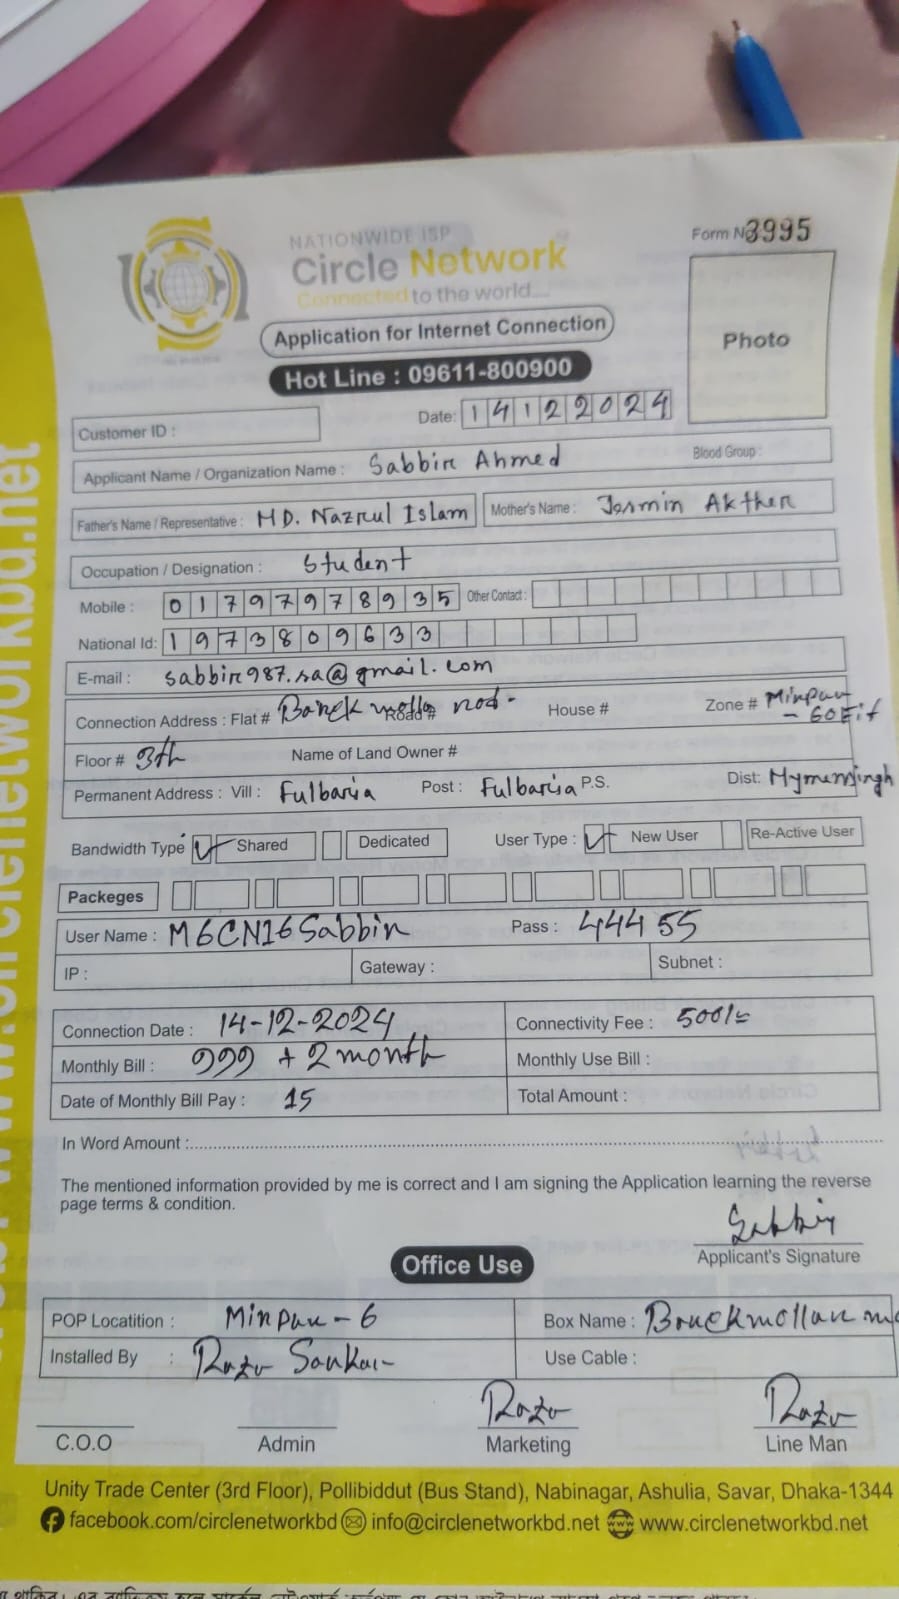 NATIONWIDE ISP
Circle Network
Connected to the world....
Form No 3995
Application for Internet Connection
Photo
Hot Line : 09611-800900
Customer ID :
Date: 14122024
Applicant Name / Organization Name : Sabbir Ahmed
Blood Group :
Father's Name / Representative : MD. Nazrul Islam
Mother's Name : Jasmin Akther
Occupation / Designation : Student
Mobile : 01797978935
Other Contact :
National Id: 1973809633
E-mail : sabbir987.sa@gmail.com
Connection Address : Flat # Road # House # Zone # Mirpur
Floor # 3th Name of Land Owner #
Permanent Address : Vill : Fulbaria Post : Fulbaria P.S. Dist: Mymensingh
Bandwidth Type Shared Dedicated User Type : New User Re-Active User
Packeges
User Name : M6CN16Sabbir Pass : 444 55
IP : Gateway : Subnet :
Connection Date : 14-12-2024 Connectivity Fee : 500/=
Monthly Bill : 999 + 2 month Monthly Use Bill :
Date of Monthly Bill Pay : 15 Total Amount :
In Word Amount :
The mentioned information provided by me is correct and I am signing the Application learning the reverse
page terms & condition.
Sabbir
Applicant's Signature
Office Use
POP Locatition : Mirpur - 6 Box Name :
Installed By : Use Cable :
C.O.O Admin Marketing Line Man
Unity Trade Center (3rd Floor), Pollibiddut (Bus Stand), Nabinagar, Ashulia, Savar, Dhaka-1344
facebook.com/circlenetworkbd info@circlenetworkbd.net www.circlenetworkbd.net
www.circlenetworkbd.net